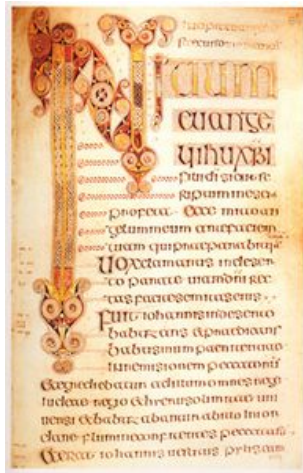 INitium
euange
lii ihu xpi
fili di sicut sc
riptum in esei
profeta Ecce mitto an
gelum meum ante faciem
tuam qui praeparabit
UOx clamantis in deser
to parate uiam dni rec
tas facite semitas eius
Fuit iohannis in deserto
babtizans et praedicans
babtismum paenitentiae
in remisionem peccatorum
ad illum omnes
iudeae regio et hierusolimitae uni
uersi et babtizabantur ab illo in ior
dane flumine confitentes peccata
Et erat iohannis uestitus pylis cam